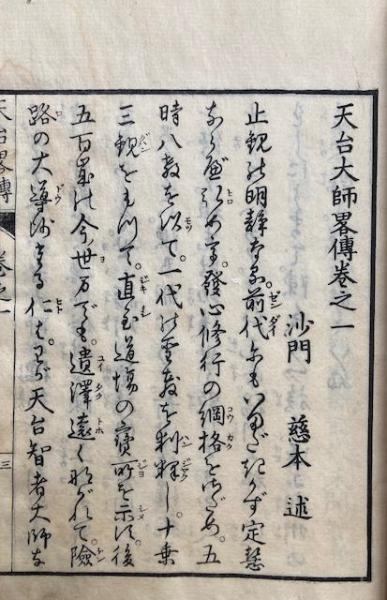 天台大師畧傳卷之一
沙門 慈本 述
止観の明静なる。前代にもいまだきかず定慧
ならべ弘め。發心修行の綱格をさだめ。五
時八教を以て。一代の聖教を判釋し。十乗
三観をもつて。直至道場の寳所を示す。後
五百歳の今世までも。遺澤遠くながれて。險
路の大導師たる仁は。わが天台智者大師な
天台畧傳 卷之一 三